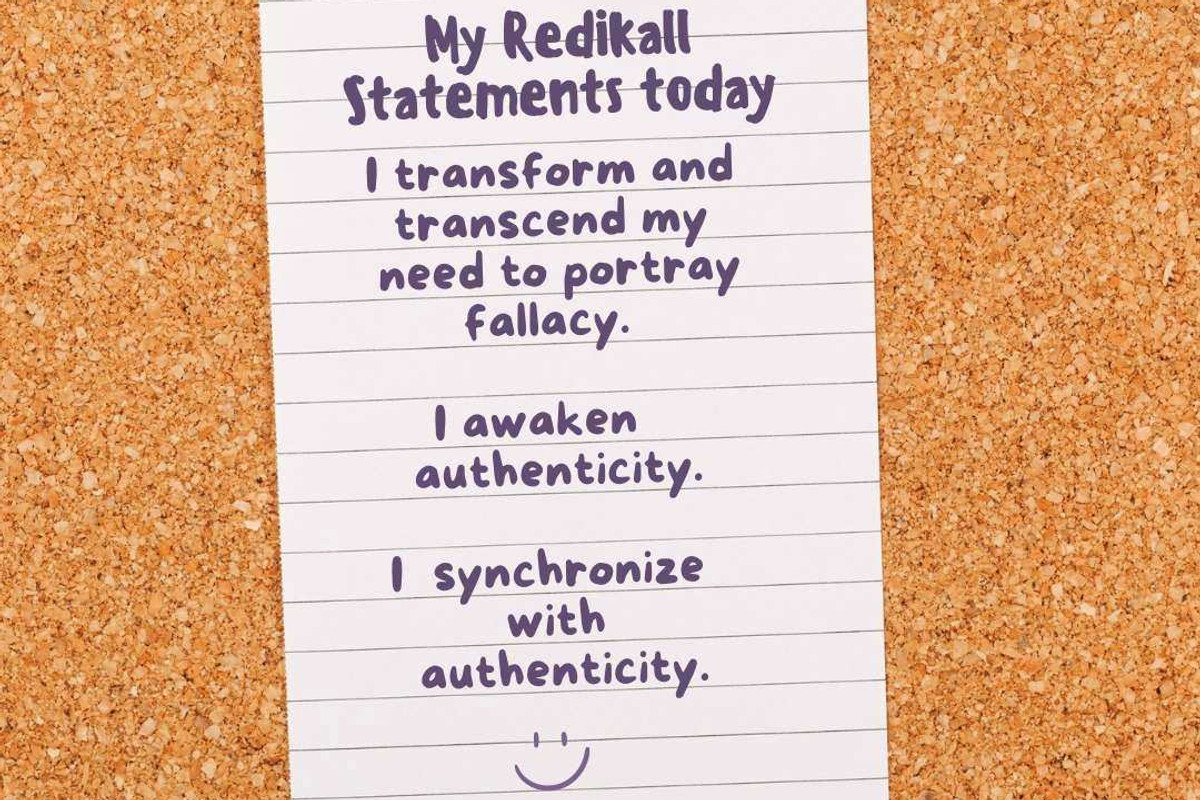 My Redikall
Statements today
I transform and
transcend my
need to portray
fallacy.
I awaken
authenticity.
I synchronize
with
authenticity.